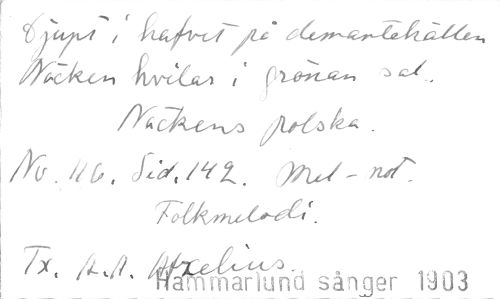 Djupt i hafvet på demantehällen
Näcken hvilar i grönan sal.
Näckens polska.
No. 116. Sid. 142. Mel-not.
Folkmelodi.
Tx. A.A. Afzelius.
Hammarlund sånger 1903